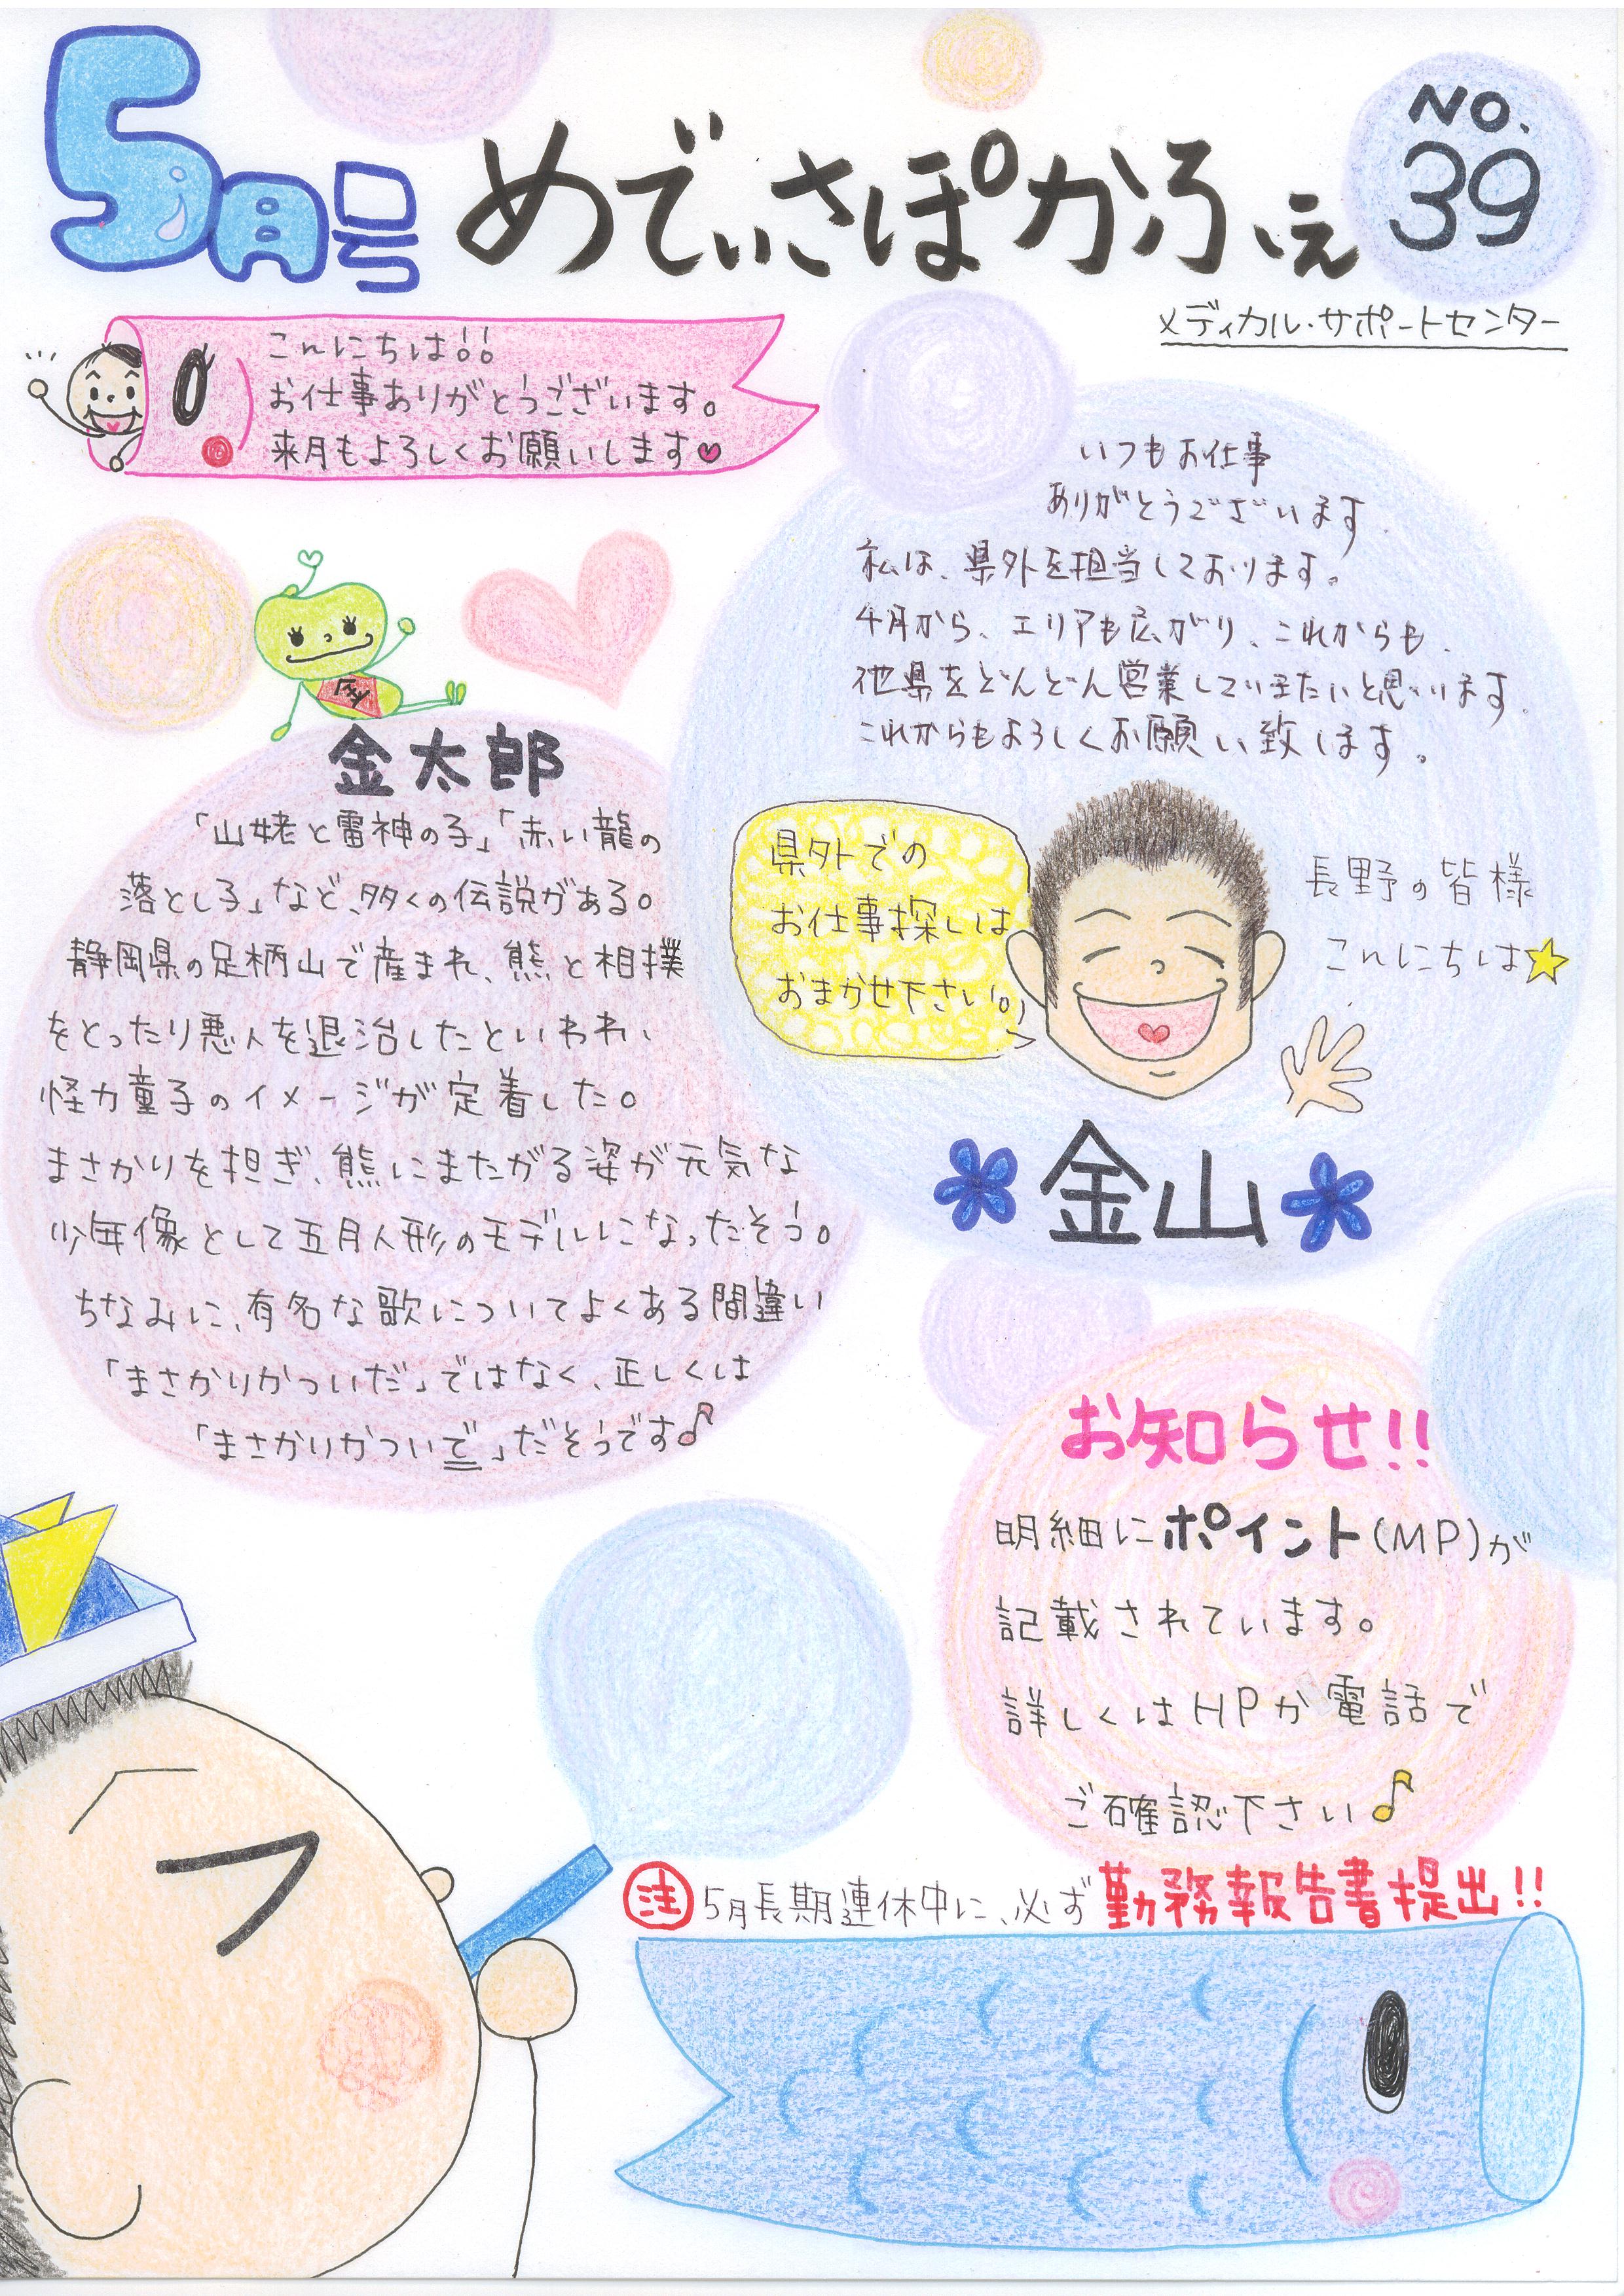 5月号
めでぃさぽかふぇ
NO.
39
メディカル・サポートセンター
こんにちは!!
お仕事ありがとうございます。
来月もよろしくお願いします
いつもお仕事
ありがとうございます.
私は、県外を担当しております。
4月から、エリアも広がり、これからも、
他県をどんどん営業していきたいと思います.
これからもよろしくお願い致します。
県外での
お仕事探しは
おまかせ下さい。
長野の皆様
こんにちは☆
金山
金太郎
「山姥と雷神の子」「赤い龍の
落とし子」など、多くの伝説がある。
静岡県の足柄山で産まれ、熊と相撲
をとったり悪人を退治したといわれ、
怪力童子のイメージが定着した。
まさかりを担ぎ、熊にまたがる姿が元気な
少年像として五月人形のモデルになったそう。
ちなみに、有名な歌についてよくある間違い
「まさかりかついだ」ではなく、正しくは
「まさかりかついで」だそうです♪
お知らせ!!
明細にポイント(MP)が
記載されています。
詳しくはHPか電話で
ご確認下さい♪
注 5月長期連休中に、必ず勤務報告書提出!!